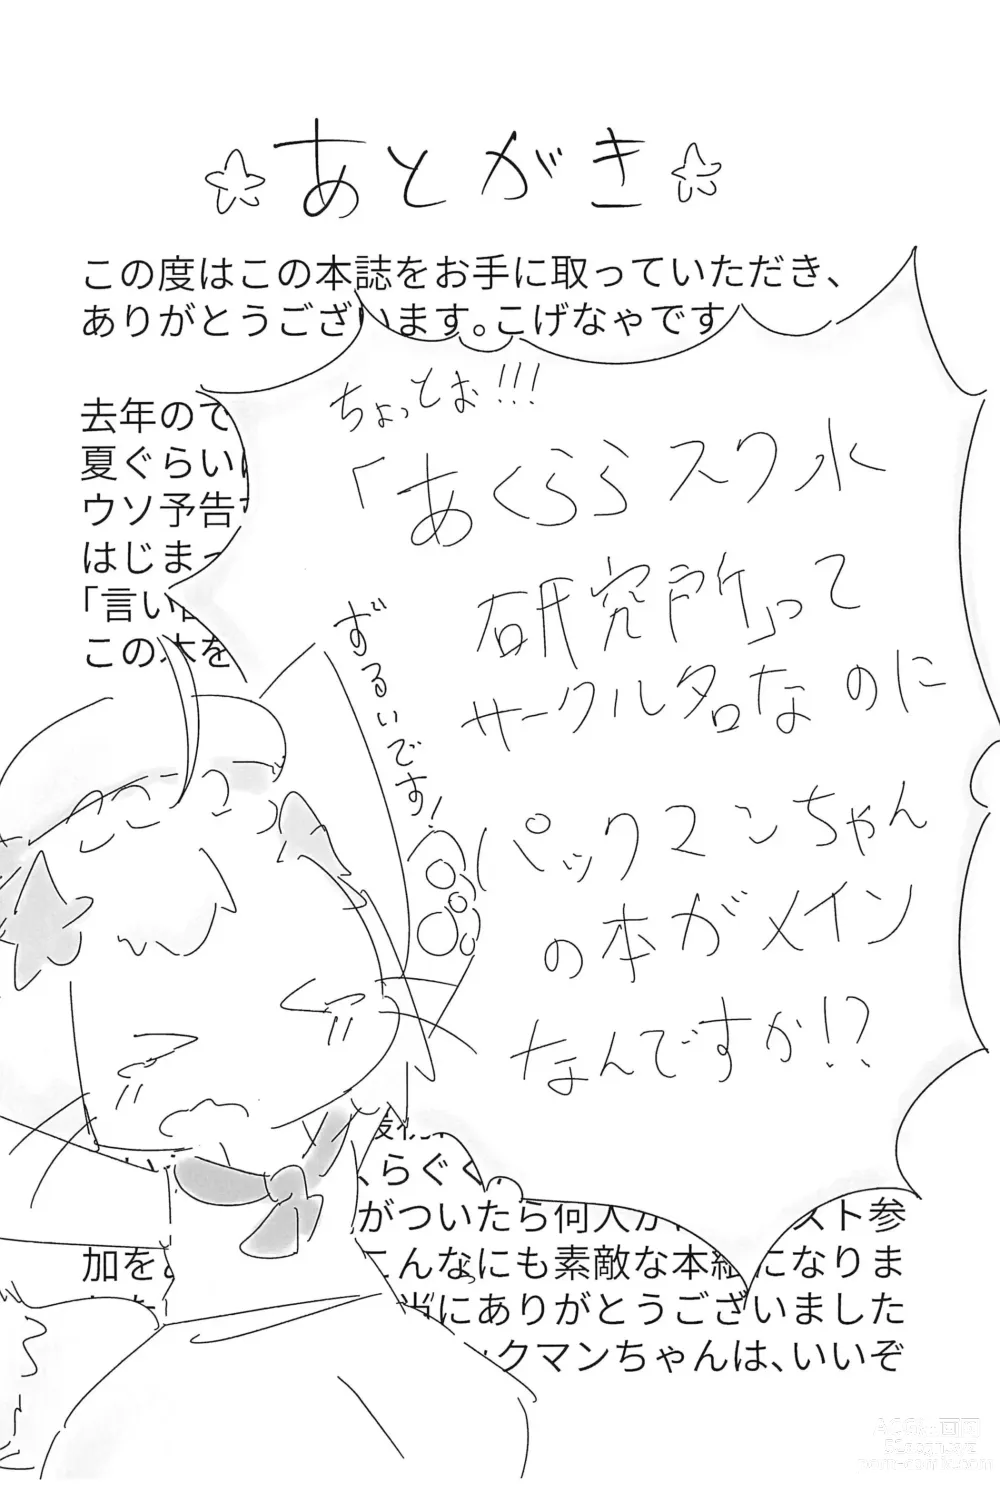 ☆あとがき☆
この度はこの本誌をお手に取っていただき、
ありがとうございます。こげなゃです
去年ので
夏ぐらいに
ウソ予告
はじまっ
「言い
この本を
ちょっとぉ!!!
「あくららスク水
研究所」って
サークル名なのに
パックマンちゃん
の本がメイン
なんですか!?
ずるいです!
らぐく
がついたら何人か スト参
加を こんなにも素敵な本 になりま
当にありがとうございました
ックマンちゃんは、いいぞ